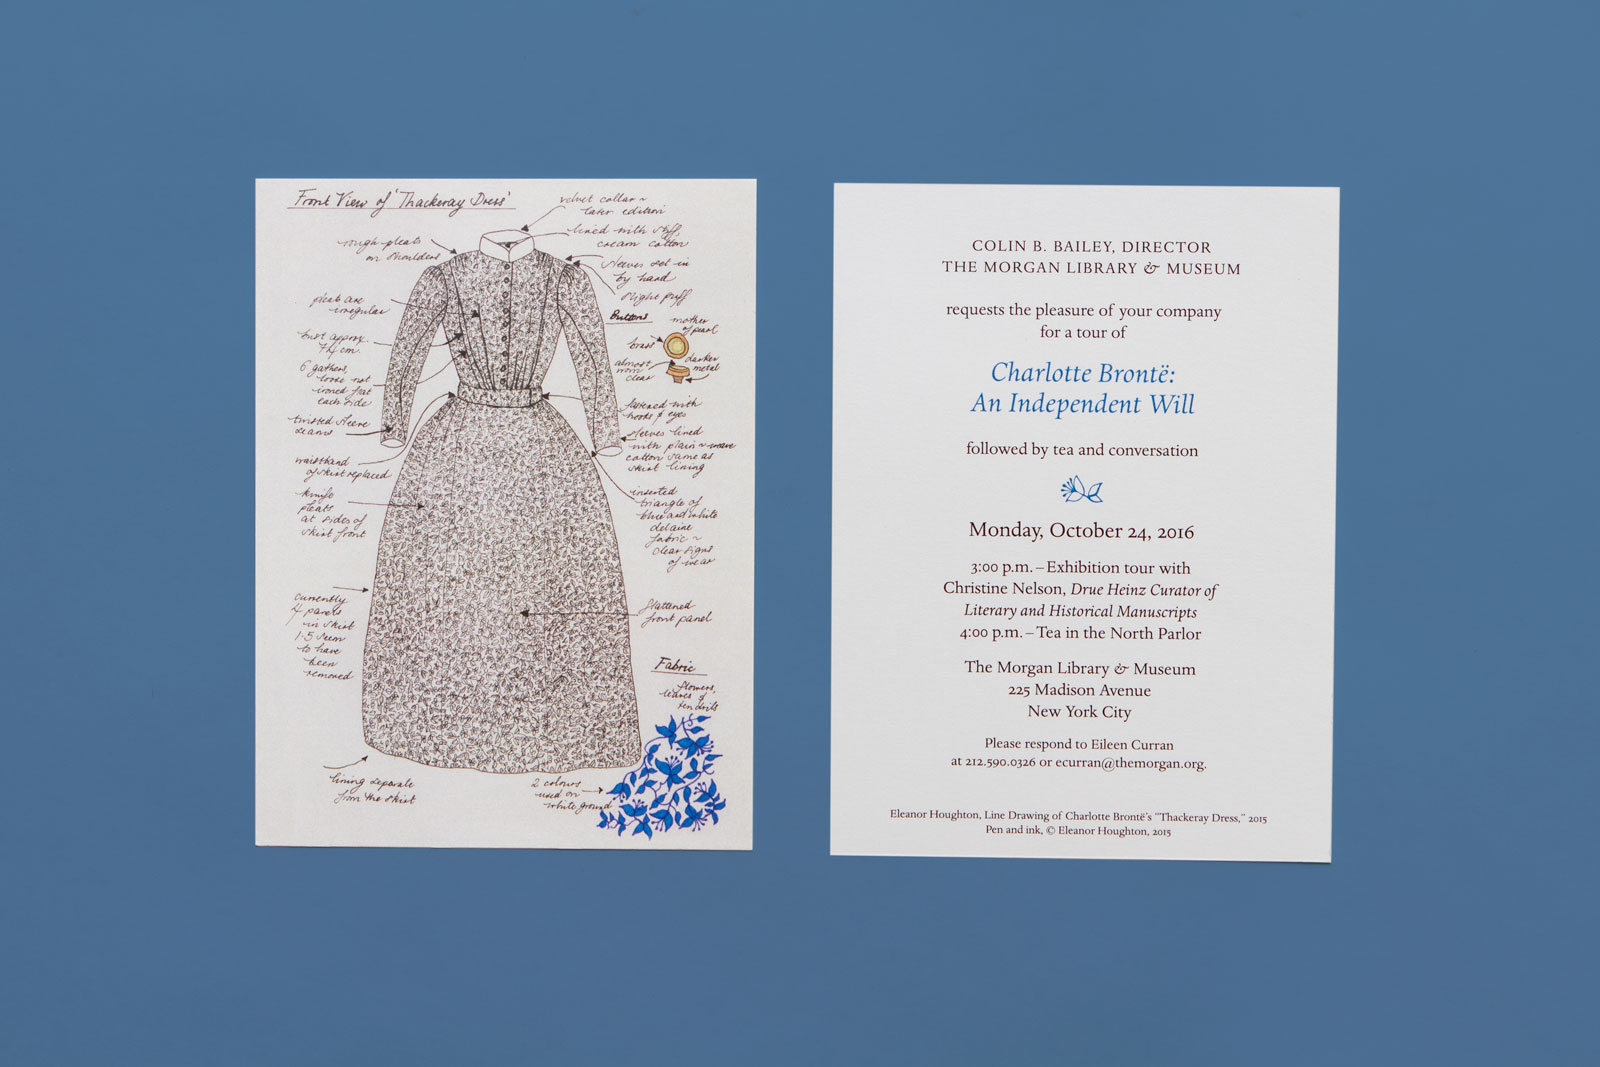 Front View of 'Thackeray Dress'
velvet collar ~
later edition
lined with stiff,
cream cotton
rough pleats
on shoulders
sleeves set in
by hand
slight puff
pleats are
irregular
Buttons
mother
of pearl
brass
almost
clear
darker
metal
bust approx.
74 cm.
6 gathers,
loose not
ironed flat
each side
twisted sleeve
seams
fastened with
hooks & eyes
sleeves lined
with plain ~ weave
cotton same as
skirt lining
waistband
of skirt replaced
knife
pleats
at sides of
skirt front
inserted
triangle of
blue and white
delaine
fabric ~
clear signs
of wear
currently
4 panels
in skirt
1.5 seem
to have
been
removed
flattened
front panel
Fabric
flowers,
leaves &
tendrils
lining separate
from the skirt
2 colours
used on
white ground
COLIN B. BAILEY, DIRECTOR
THE MORGAN LIBRARY & MUSEUM
requests the pleasure of your company
for a tour of
Charlotte Brontë:
An Independent Will
followed by tea and conversation
Monday, October 24, 2016
3:00 p.m. – Exhibition tour with
Christine Nelson, Drue Heinz Curator of
Literary and Historical Manuscripts
4:00 p.m. – Tea in the North Parlor
The Morgan Library & Museum
225 Madison Avenue
New York City
Please respond to Eileen Curran
at 212.590.0326 or ecurran@themorgan.org.
Eleanor Houghton, Line Drawing of Charlotte Brontë's "Thackeray Dress," 2015
Pen and ink, © Eleanor Houghton, 2015